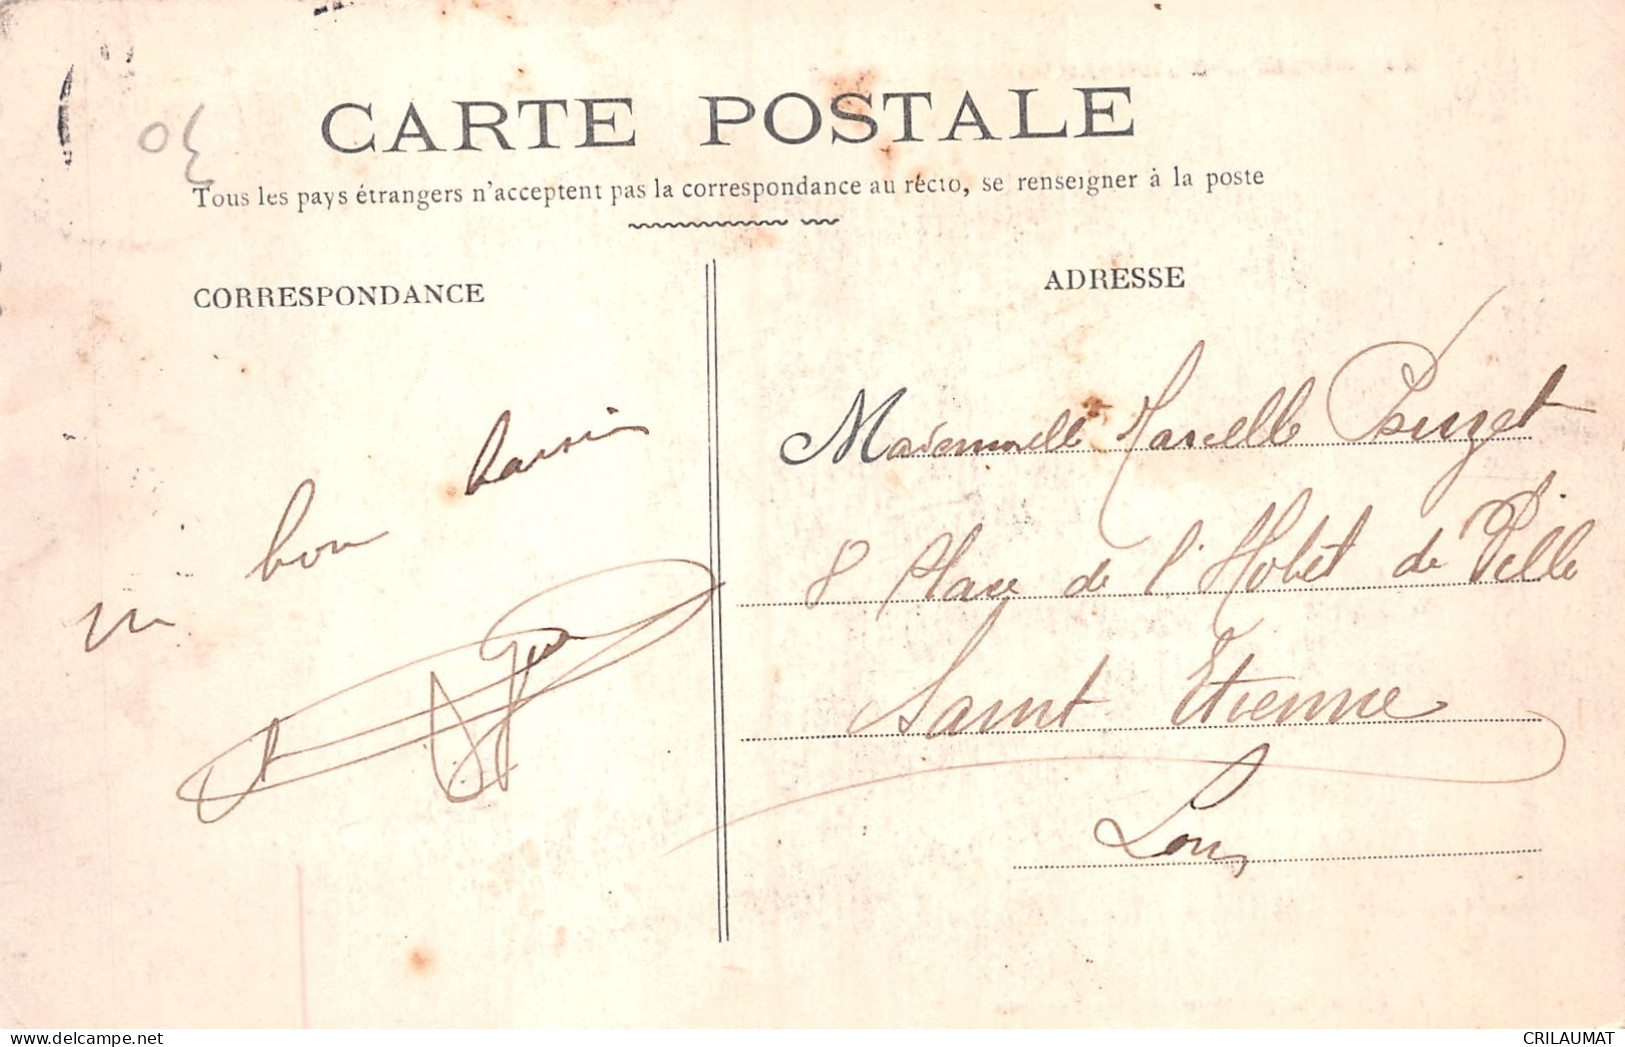 CARTE POSTALE
Tous les pays étrangers n'acceptent pas la correspondance au recto, se renseigner à la poste
CORRESPONDANCE
ADRESSE
un bon baiser
Mademoiselle Marcelle
8 Place de l'Hotel de Ville
Saint Etienne
Loire
CRILAUMAT